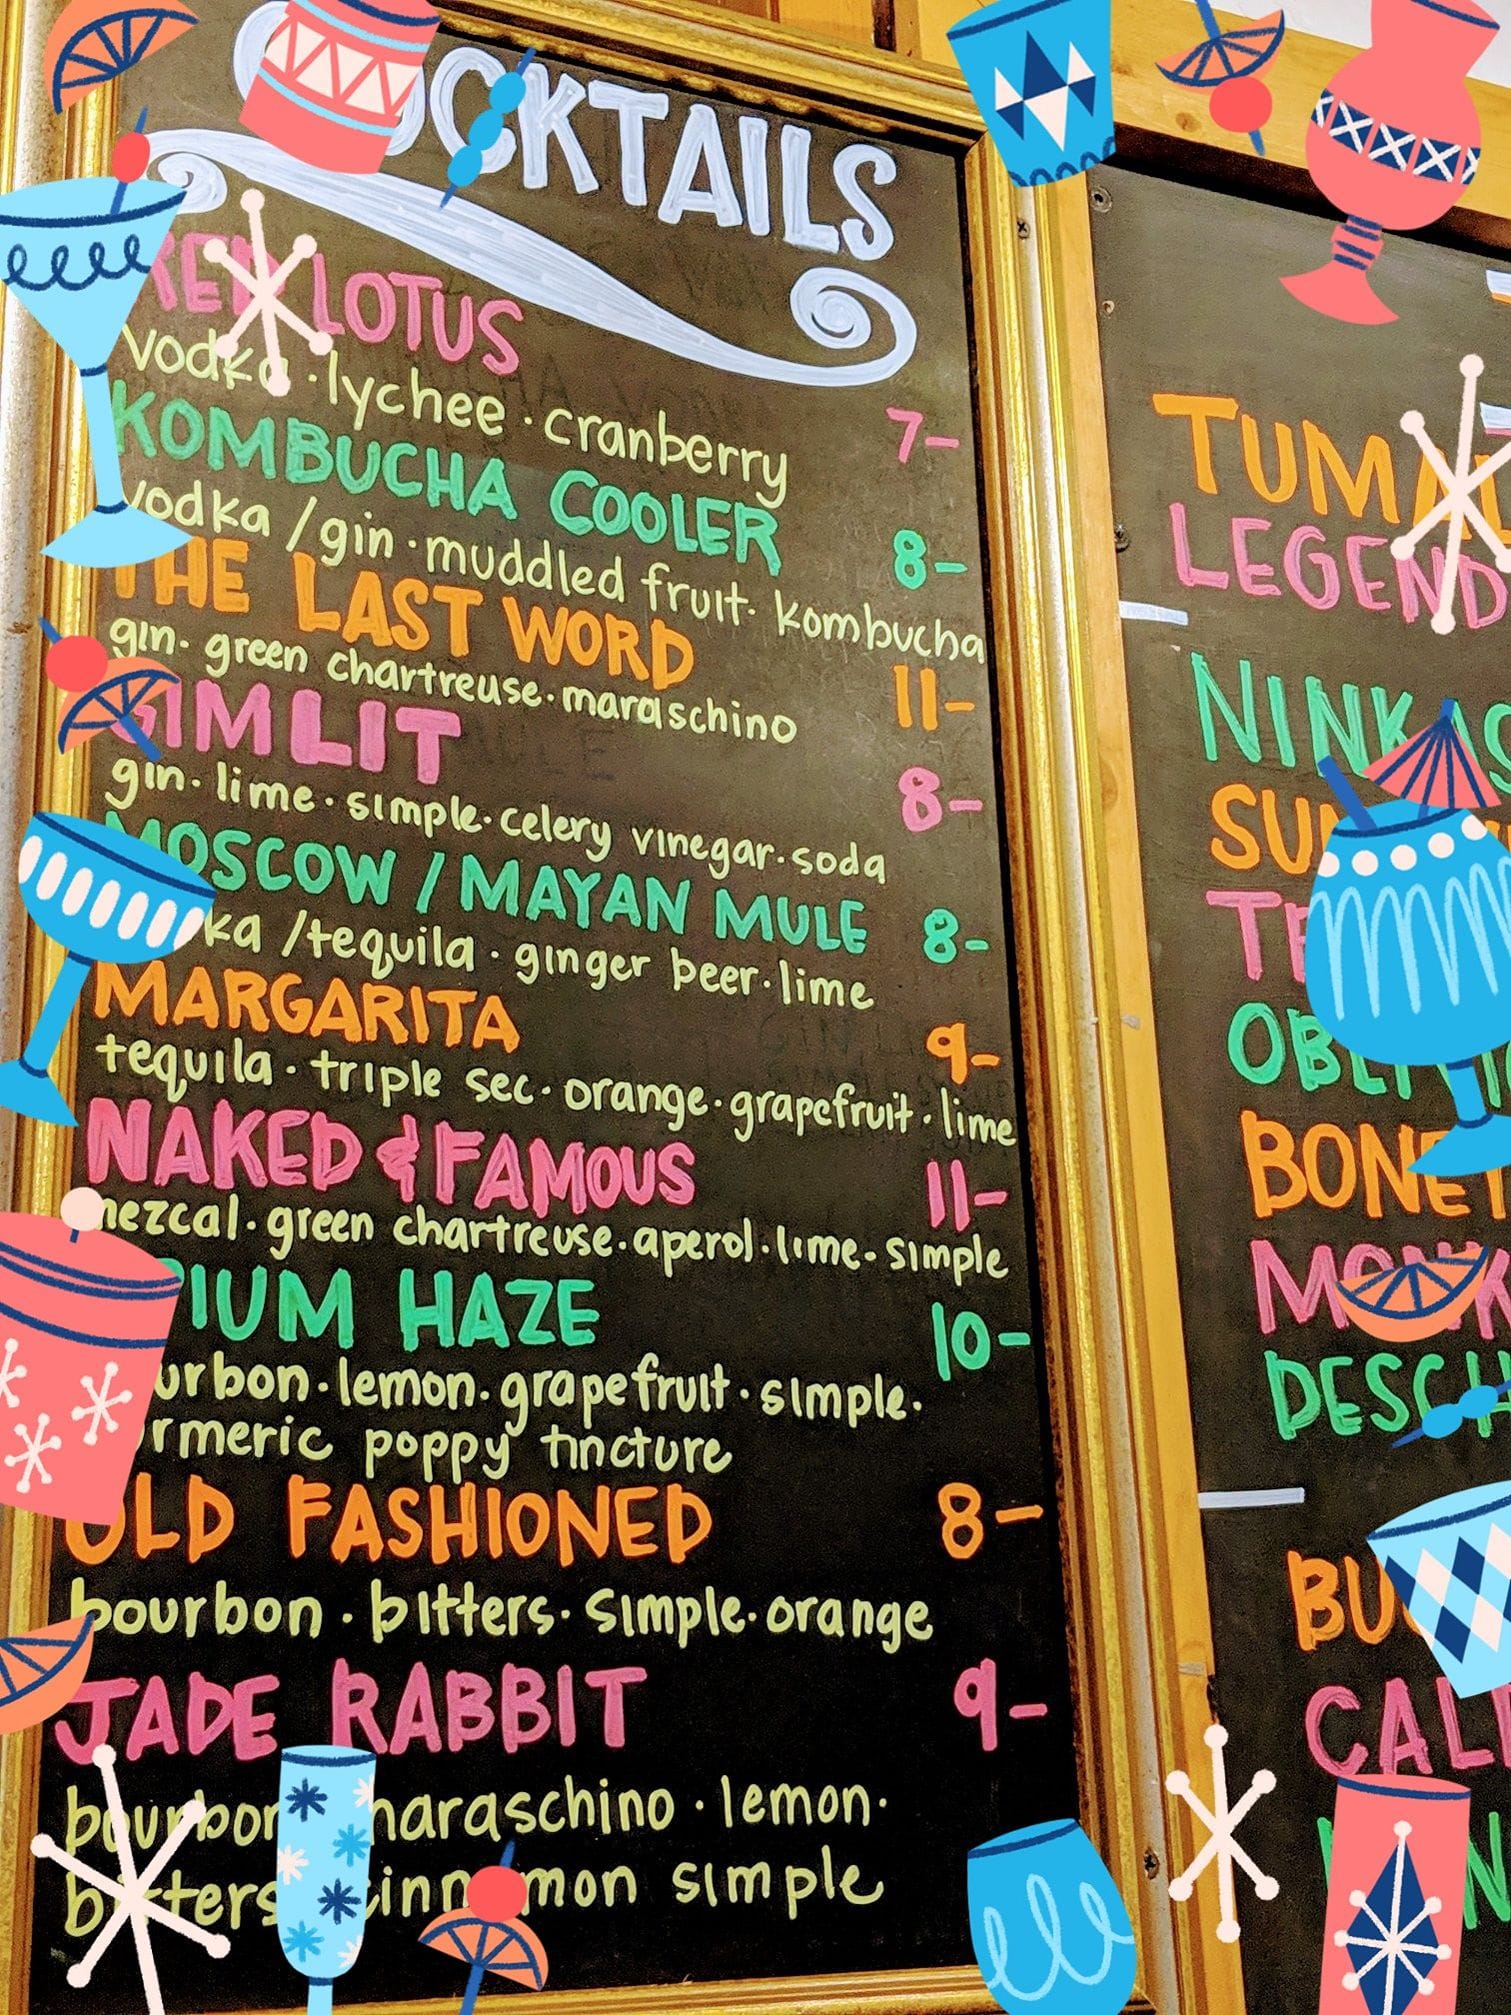 COCKTAILS
RED LOTUS
vodka · lychee · cranberry 7-
KOMBUCHA COOLER
vodka / gin · muddled fruit · kombucha 8-
THE LAST WORD
gin · green chartreuse · maraschino 11-
GIMLIT
gin · lime · simple · celery vinegar · soda 8-
MOSCOW / MAYAN MULE 8-
vodka / tequila · ginger beer · lime
MARGARITA 9-
tequila · triple sec · orange · grapefruit · lime
NAKED & FAMOUS 11-
mezcal · green chartreuse · aperol · lime · simple
OPIUM HAZE 10-
bourbon · lemon · grapefruit · simple ·
turmeric poppy tincture
OLD FASHIONED 8-
bourbon · bitters · simple · orange
JADE RABBIT 9-
bourbon maraschino · lemon ·
bitters cinnamon simple
TUMAL
LEGEND
NINKAS
SUN
OBLIVI
BONE
MONK
DESCH
BU
CAL